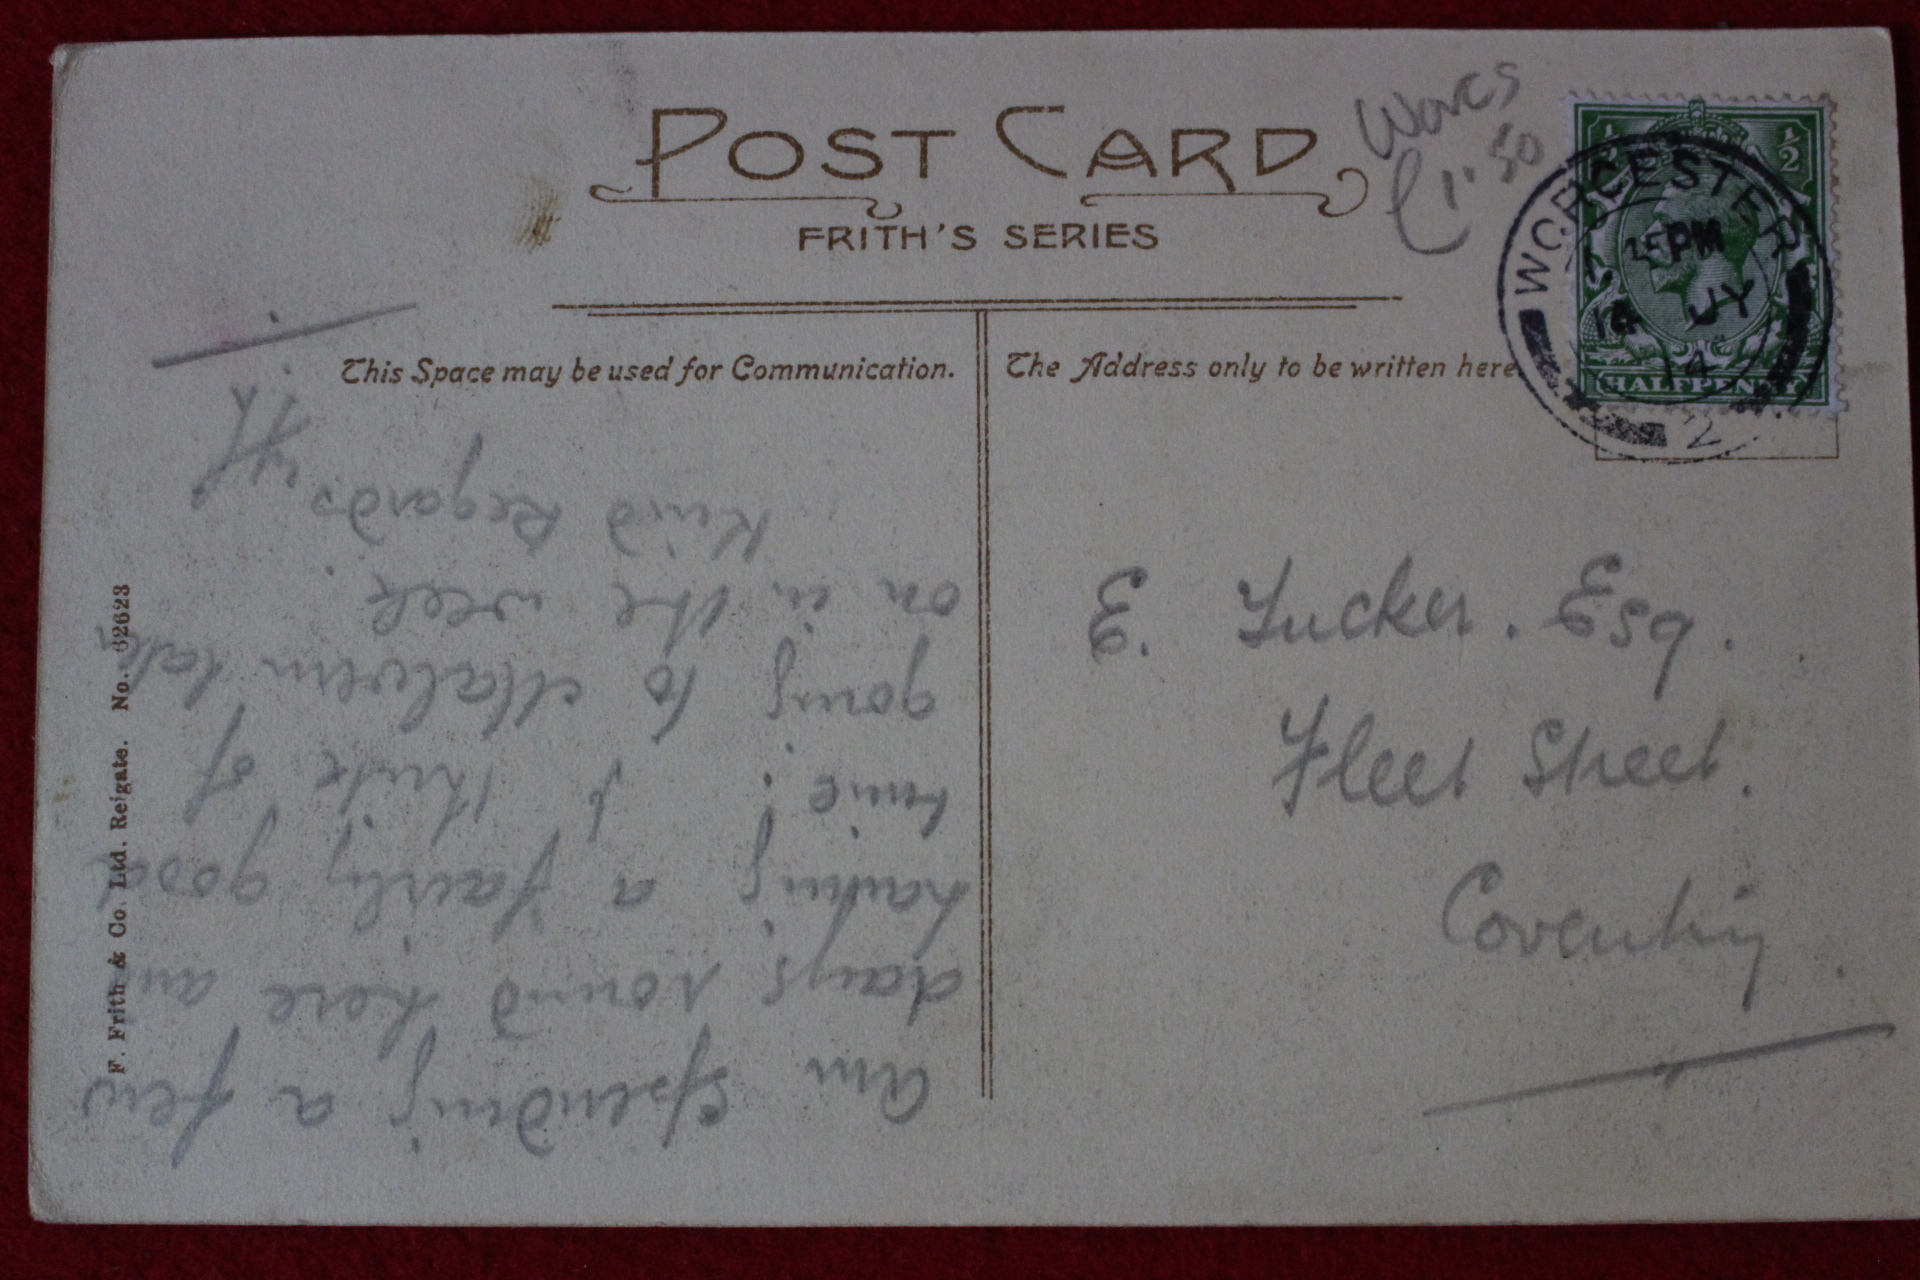 POST CARD
FRITH'S SERIES
Worcs
£1.50
WORCESTER
1. 15 PM
14 JY
14
2
½ ½
HALFPENNY
This Space may be used for Communication.
The Address only to be written here
E. Tucker. Esq.
Fleet Street.
Coventry.
Am spending a few
days round here am
having a fairly good
time. I think of
going to Malvern later
on in the week.
Kind Regards,
F. Frith & Co. Ltd. Reigate. No. 62623